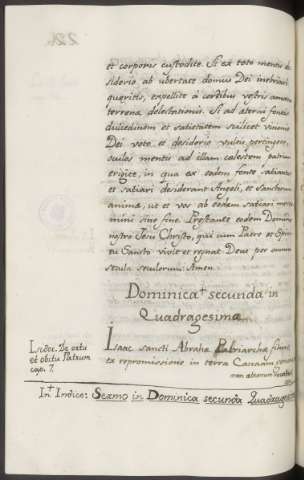 et corporis custodite. Si ex toto mentis de-
siderio ab ubertate domus Dei inebriari
queritis, expellite à cordibus vestris amorem
terrenæ delectationis. Si ad æterni fontis
dulcedinem et satietatem scilicet visionis
Dei voto et desiderio vultis pertingere,
oculos mentis ad illam cælestem patriam
erigite, in qua ex eodem fonte satiantur
et satiari desiderant Angeli, et Sanctorum
animæ, ut et vos ab eodem satiari mere-
mini sine fine. Præstante eodem Domino
nostro Jesu Christo, qui cum Patre et Spiritu
Sancto vivit et regnat Deus per omnia
secula seculorum. Amen.
Dominica† secunda in
Quadragesima
Isidor. de ortu
et obitu Patrum
cap. 7.
Isaac sancti Abrahæ Patriarchæ filius
ex repromissione in terra Canaam
In† Indice: Sermo in Dominica secunda Quadragesimæ